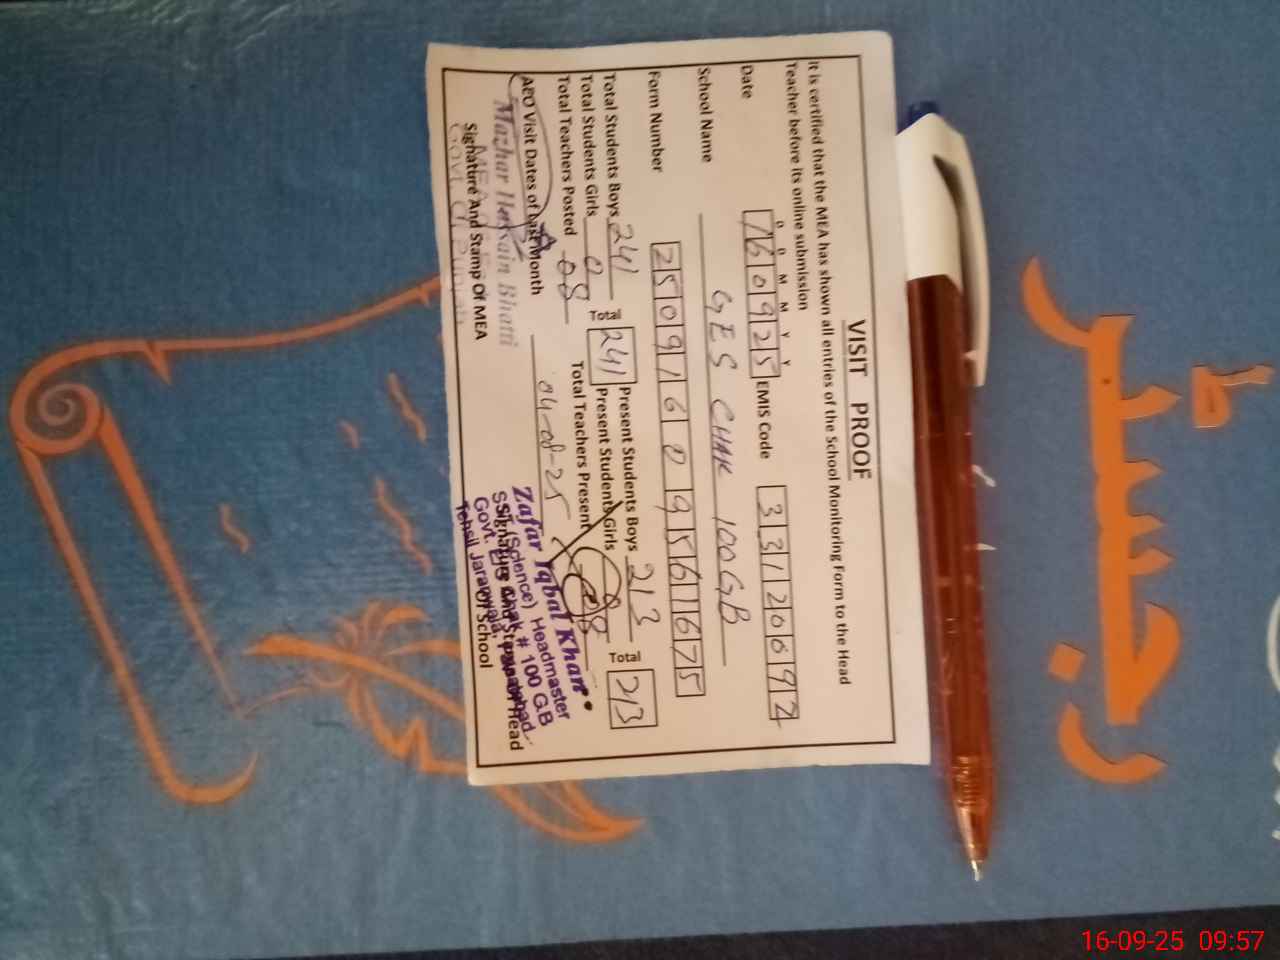 VISIT PROOF
It is certified that the MEA has shown all entries of the School Monitoring Form to the Head
Teacher before its online submission
D D M M Y Y
Date 160925 EMIS Code 33120692
School Name GES CHAK 100GB
Form Number 25091609561675
Total Students Boys 241 Present Students Boys 213
Total 241 Total 213
Total Students Girls 0 Present Students Girls
Total Teachers Posted 08 Total Teachers Present 08
AEO Visit Dates of Last Month 04-08-25
Mazhar Hussain Bhatti
MEA
Govt. of Punjab
Signature And Stamp Of MEA
Zafar Iqbal Khan
SST (Science) Headmaster
Govt. E/S Chak # 100 G.B
Tehsil Jaranwala,
Signature And Stamp Of Head
Of School
رجسٹر
16-09-25 09:57